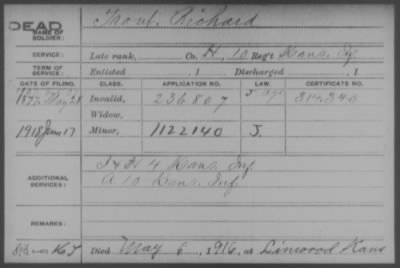 DEAD
NAME OF SOLDIER:
Trout, Richard
SERVICE:
Late rank, Co. H, 10 Reg't Kans. Inf
TERM OF SERVICE:
Enlisted , 1 Discharged , 1
DATE OF FILING. CLASS. APPLICATION NO. LAW. CERTIFICATE NO.
1877 May 28 Invalid, 236807 314,340
Widow,
1918 June 17 Minor, 1122140 J.
ADDITIONAL SERVICES:
I & H 4 Kans. Inf
A 10 Kans. Inf
REMARKS:
Died May 6, 1916, at Linwood Kans